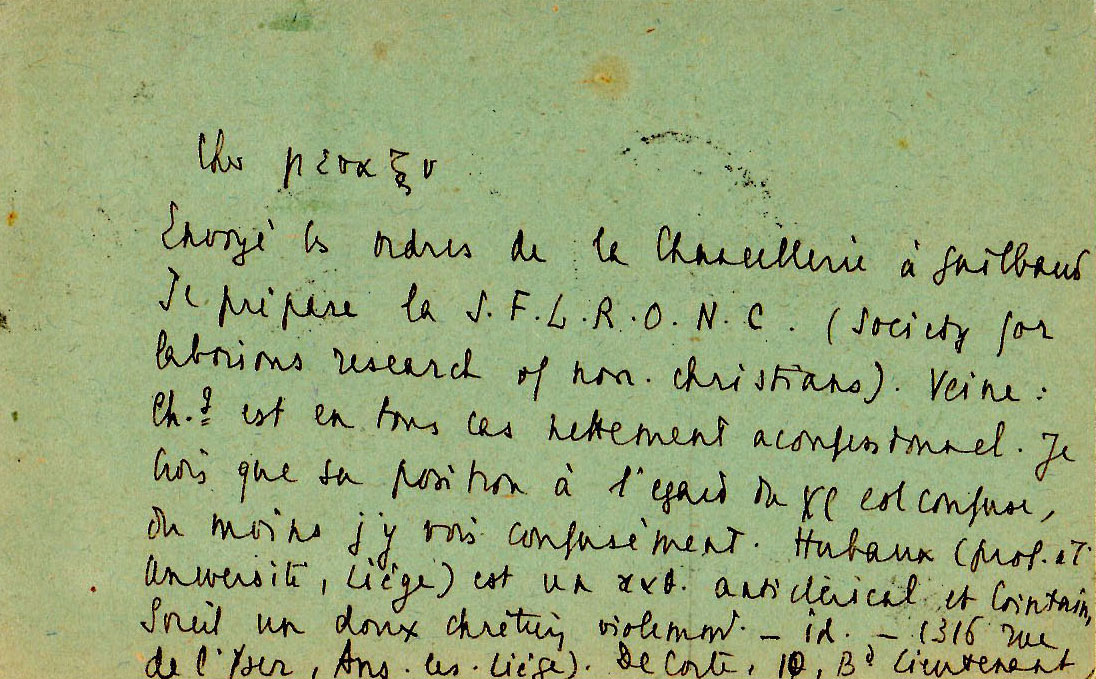 Cher
Envoyé les ordres de la Chancellerie à Guilbaud
Je prépare la S.F.L.R.O.N.C. (Society for
laborious research of non-christians). Veine :
Ch. est en tous cas nettement aconfessionnel. Je
crois que sa position à l'égard du χρ est confuse,
du moins j'y vois confusément. Hubaux (prof. at
Université, Liége) est un anticlérical et lointain,
Soreil un doux chrétien violemmt. – id. – (316 rue
de l'Yser, Ans-les-Liége). De Corte, 10, Bd Lieutenant,